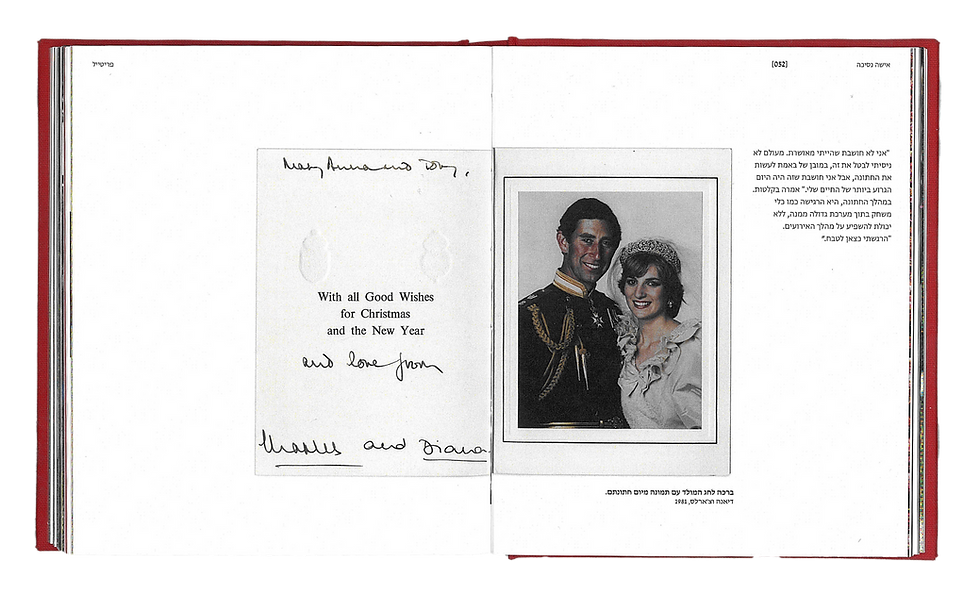 אישה נסיכה
[052]
פריטייל
"אני לא חושבת שהייתי מאושרת. מעולם לא
ניסיתי לבטל את זה, במובן של באמת לעשות
את החתונה, אבל אני חושבת שזה היה היום
הגרוע ביותר של החיים שלי." אמרה בקלטות.
במהלך החתונה, היא הרגישה כמו כלי
משחק בתוך מערכת גדולה ממנה, ללא
יכולת להשפיע על מהלך האירועים.
"הרגשתי כצאן לטבח."
ברכה לחג המולד עם תמונה מיום חתונתם.
דיאנה וצ'ארלס, 1981
Mary Anna and
With all Good Wishes
for Christmas
and the New Year
and love from
Charles and Diana